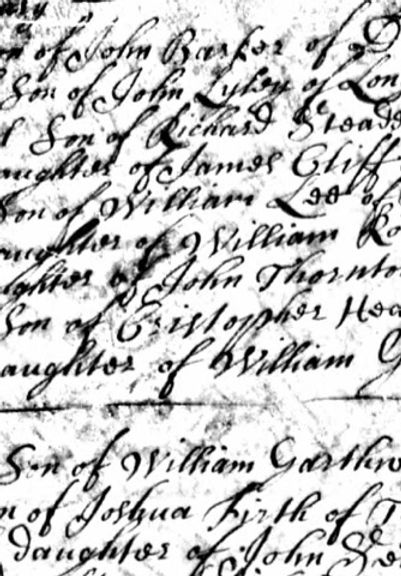 on of John Barker of
Son of John Lyley of Lon
Son of Richard Steade
aughter of James Cliff
Son of William Lee of
aughter of William Ro
ghter of John Thornto
Son of Cristopher Hea
aughter of William G
Son of William Garthw
n of Joshua Firth of T
daughter of John